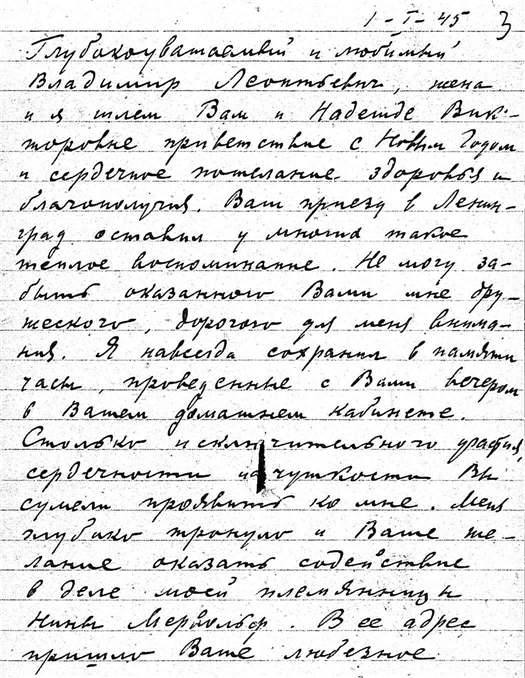 1-I-45 3
Глубокоуважаемый и любимый
Владимир Леонтьевич, жена
и я шлем Вам и Надежде Вик-
торовне приветствие с Новым Годом
и сердечное пожелание здоровья и
благополучия. Ваш приезд в Ленин-
град оставил у многих такое
теплое воспоминание. Не могу за-
быть оказанного Вами мне дру-
жеского, дорогого для меня внима-
ния. Я навсегда сохранил в памяти
часы, проведенные с Вами вечером
в Вашем домашнем кабинете.
Столько исключительного
сердечности и чуткости Вы
сумели проявить ко мне. Меня
глубоко тронуло и Ваше же-
лание оказать содействие
в деле моей племянницы
Нины Мервольф. В ее адрес
пришло Ваше любезное